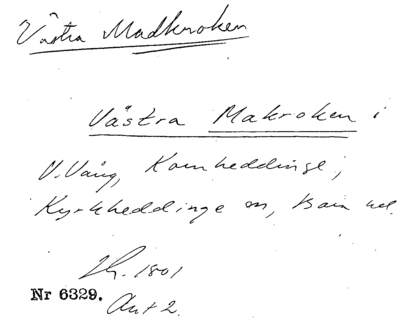 Västra Madkroken
Västra Makroken i
V. Vång, Kornheddinge,
Kyrkheddinge sn, Bara hd.
Lh. 1801
Nr 6329.
Akt 2.